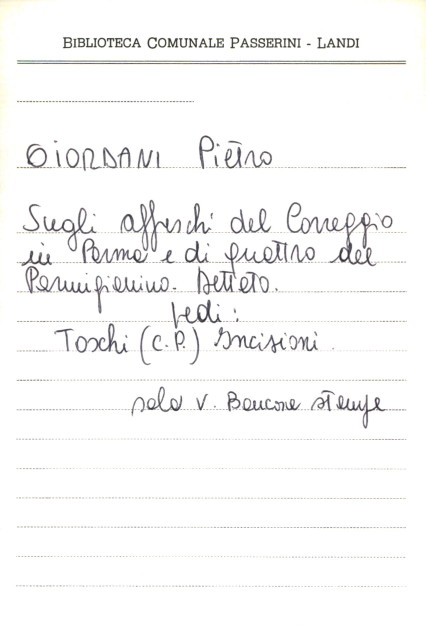 BIBLIOTECA COMUNALE PASSERINI - LANDI
GIORDANI Pietro
Sugli affreschi del Correggio
in Parma e di quattro del
Parmigianino.
Vedi:
Toschi (C.P.) Incisioni.
sala V. Bancone stampe